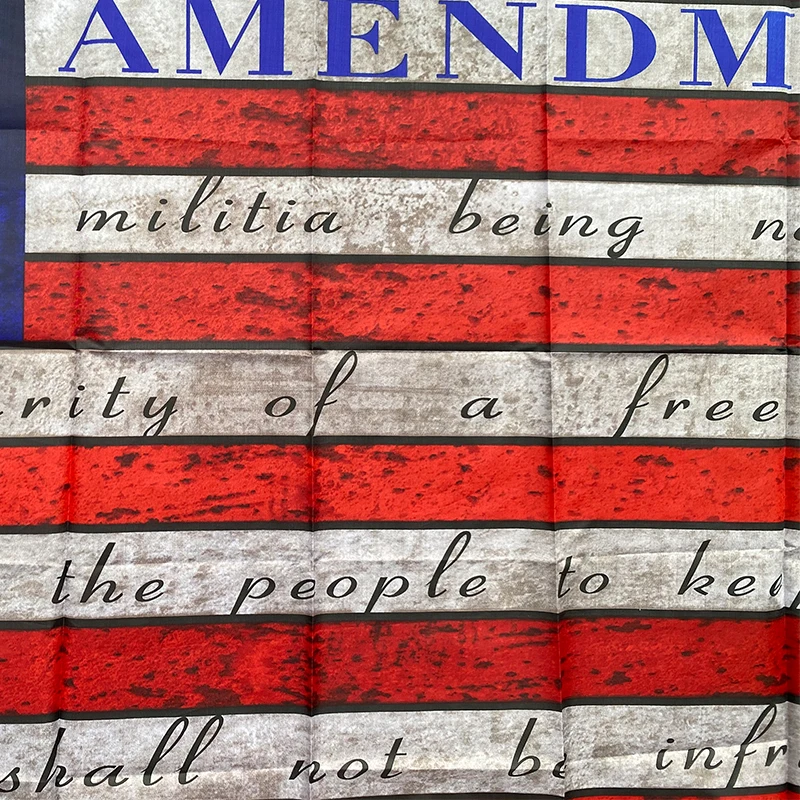 AMENDM
militia being n
rity of a free
the people to kee
shall not be infr